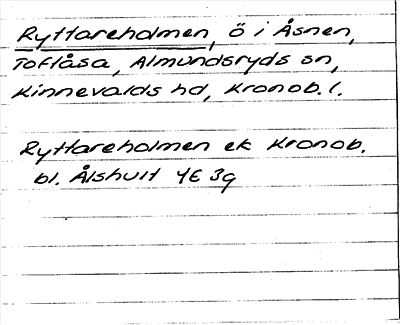 Ryttareholmen, ö i Åsnen,
Toflåsa, Almundsryds sn,
Kinnevalds hd, Kronob. l.
Ryttareholmen ek Kronob.
bl. Älshult 4E 3g